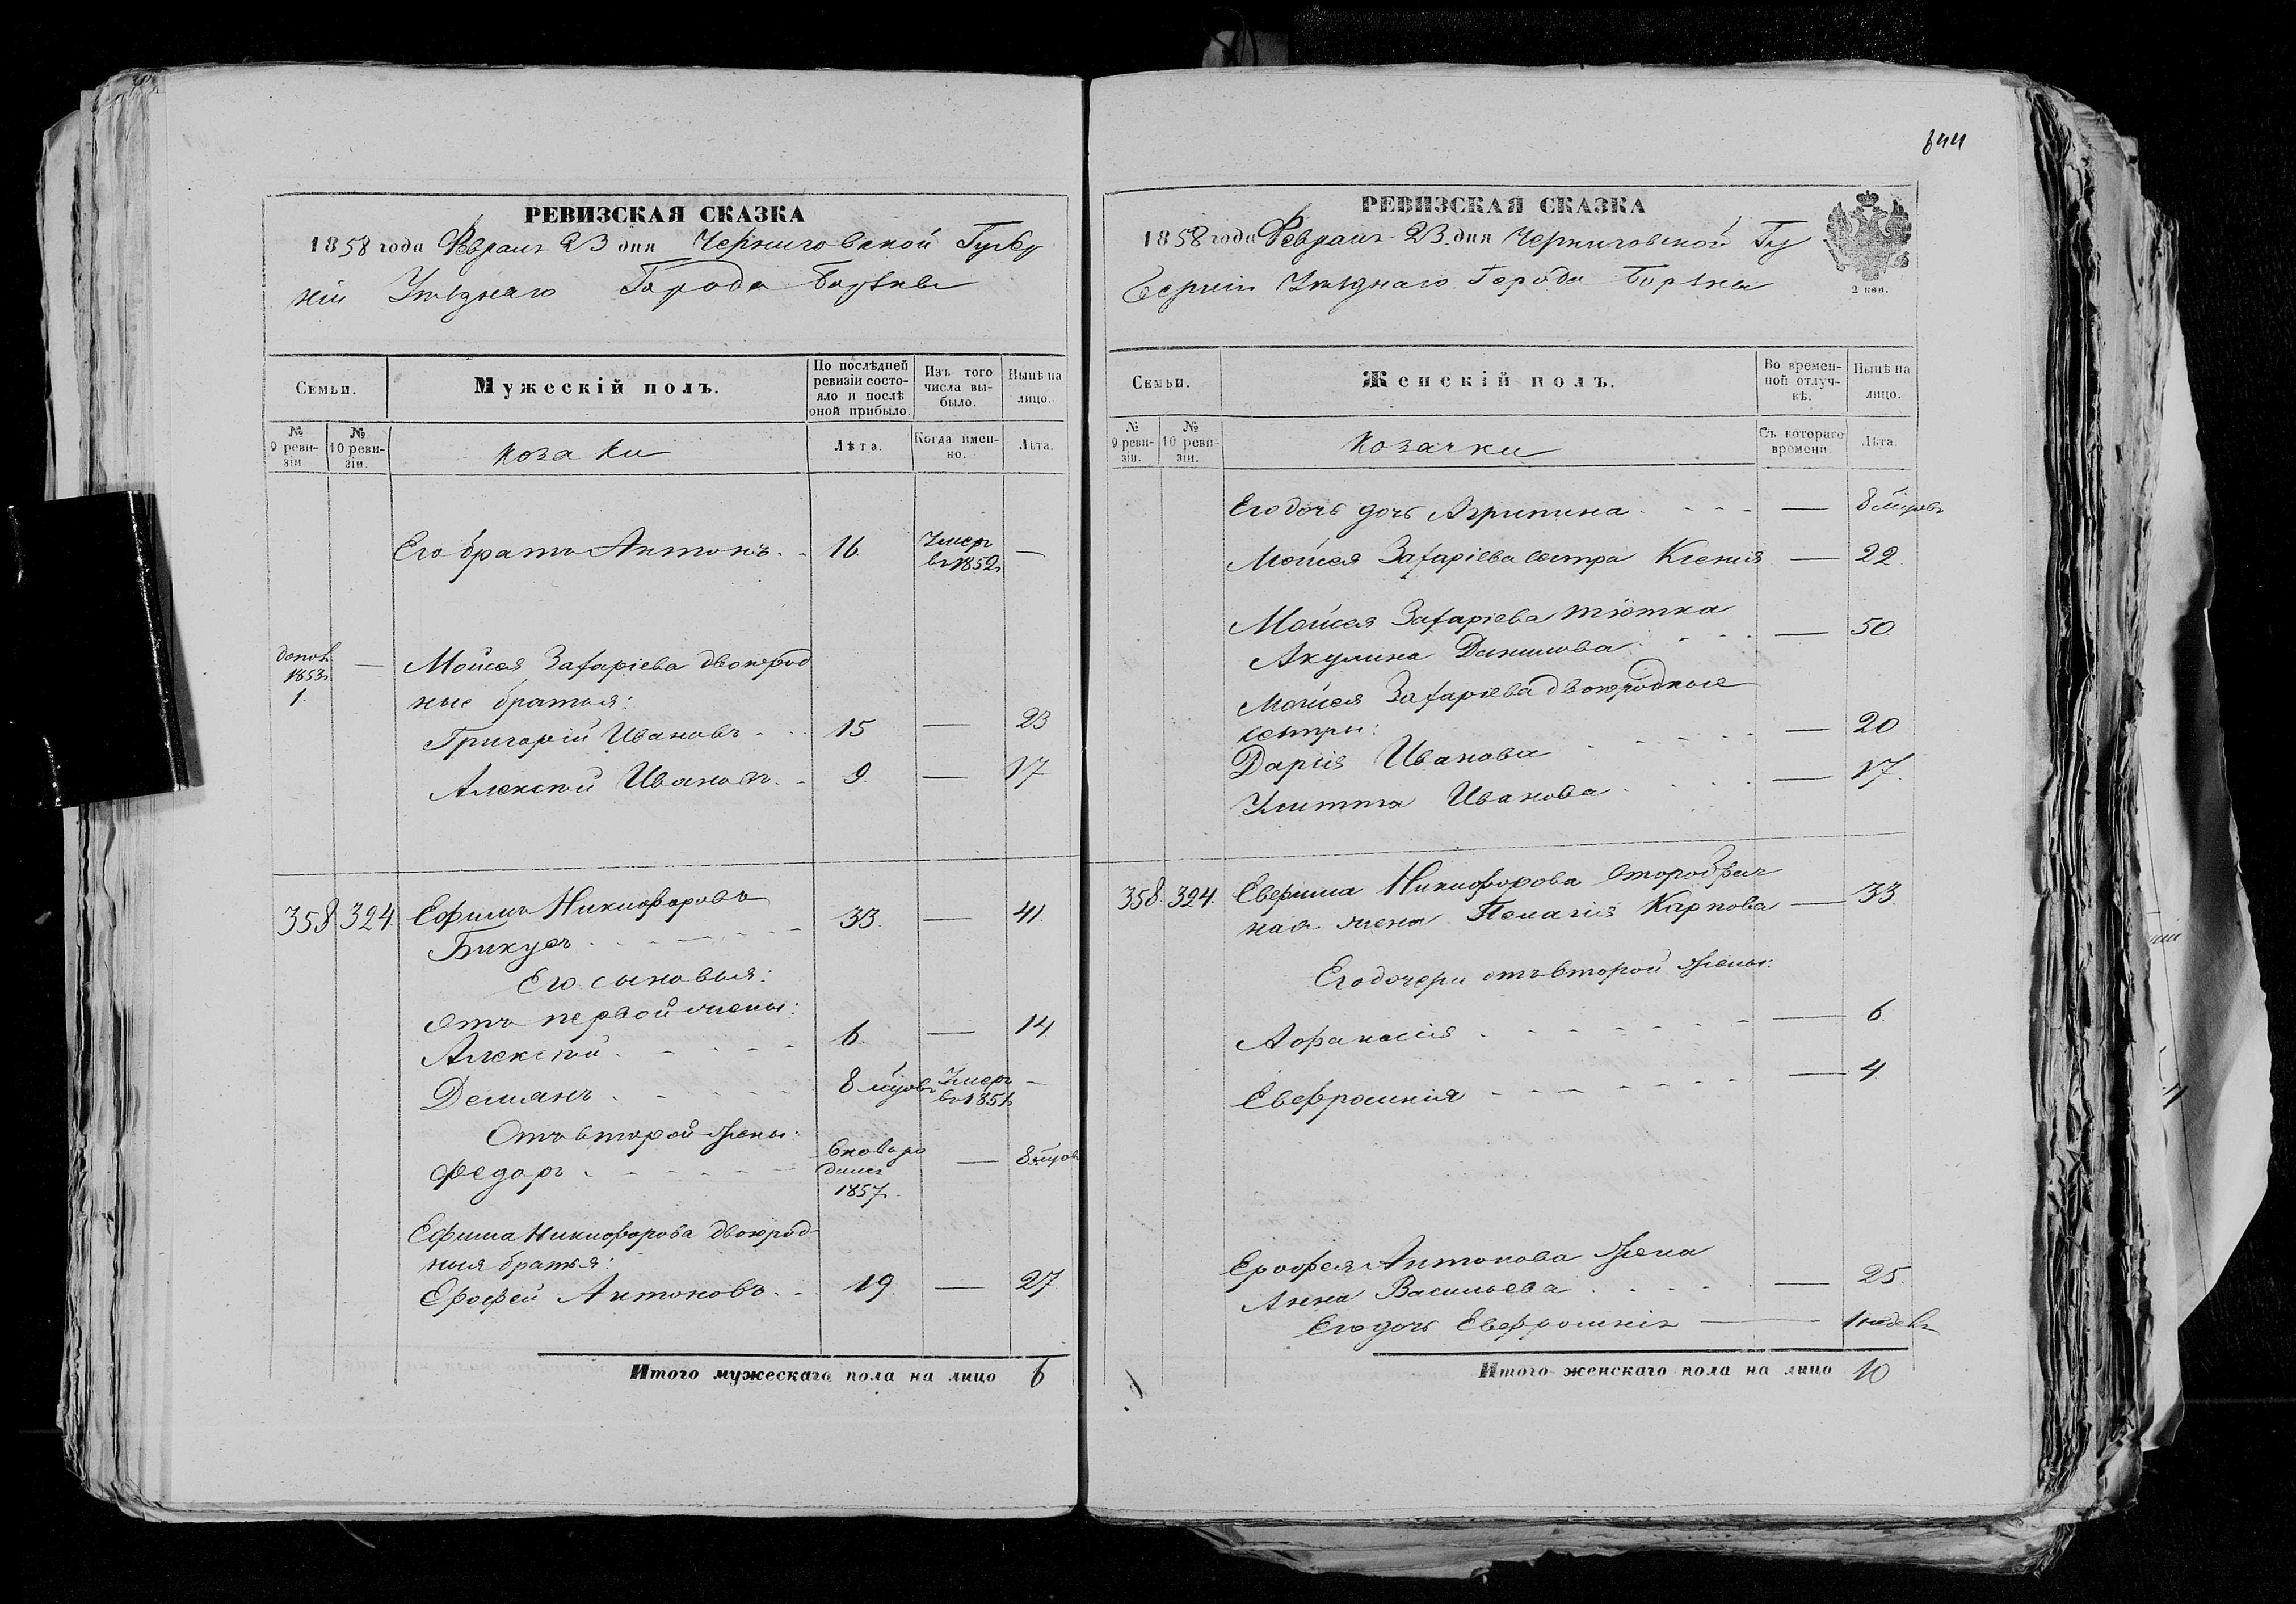 844
РЕВИЗСКАЯ СКАЗКА
1858 года Февраля 23 дня Черниговской Губер
ніи Уѣзднаго Города Борзны
Семьи.
Мужескій полъ.
По послѣдней ревизіи состояло и послѣ оной прибыло.
Изъ того числа выбыло.
Нынѣ на лицо.
№ 9 ревизіи
№ 10 ревизіи.
козаки
Лѣта.
Когда именно.
Лѣта.
Его братъ Антонъ 16 Умеръ въ 1852 —
1853 1. — Мойсея Захаріева двоюрод
ные братья:
Григорій Ивановъ 15 — 23
Алексѣй Ивановъ 9 — 17
358 324 Ефимъ Никифоровъ 33 — 41
Бикусъ
Его сыновья:
Отъ первой жены:
Алексѣй 6 — 14
Демянъ 8 мцовъ Умеръ въ 1851 —
Отъ второй жены:
Федоръ вновь ро
дился
1857 — 8 мцов
Ефима Никифорова двоюрод-
ныя братья:
Ерофей Антоновъ 19 — 27
Итого мужескаго пола на лицо 6
РЕВИЗСКАЯ СКАЗКА
1858 года Февраля 23 дня Черниговской Гу
берніи Уѣзднаго Города Борзны
2 коп.
Семьи.
Женскій полъ.
Во временной отлучкѣ.
Нынѣ на лицо.
№ 9 ревизіи.
№ 10 ревизіи.
Козачки
Съ котораго времени.
Лѣта.
Его дочь дочь Агрипина — 8 мцовъ
Мойсея Захаріева сестра Ксенія — 22
Мойсея Захаріева тіотка
Акулина Данилова — 50
Мойсея Захаріева двоюродные
сестры:
Дарія Иванова — 20
Улитта Иванова — 17
358 324 Ефима Никифорова второбрач
ная жена Пелагія Карпова — 33
Его дочери отъ второй жены:
Афанасія — 6
Евфросинія — 4
Ерофея Антонова жена
Анна Васильева — 25
Его дочь Евфросинія — 1 недѣл
Итого женскаго пола на лицо 10